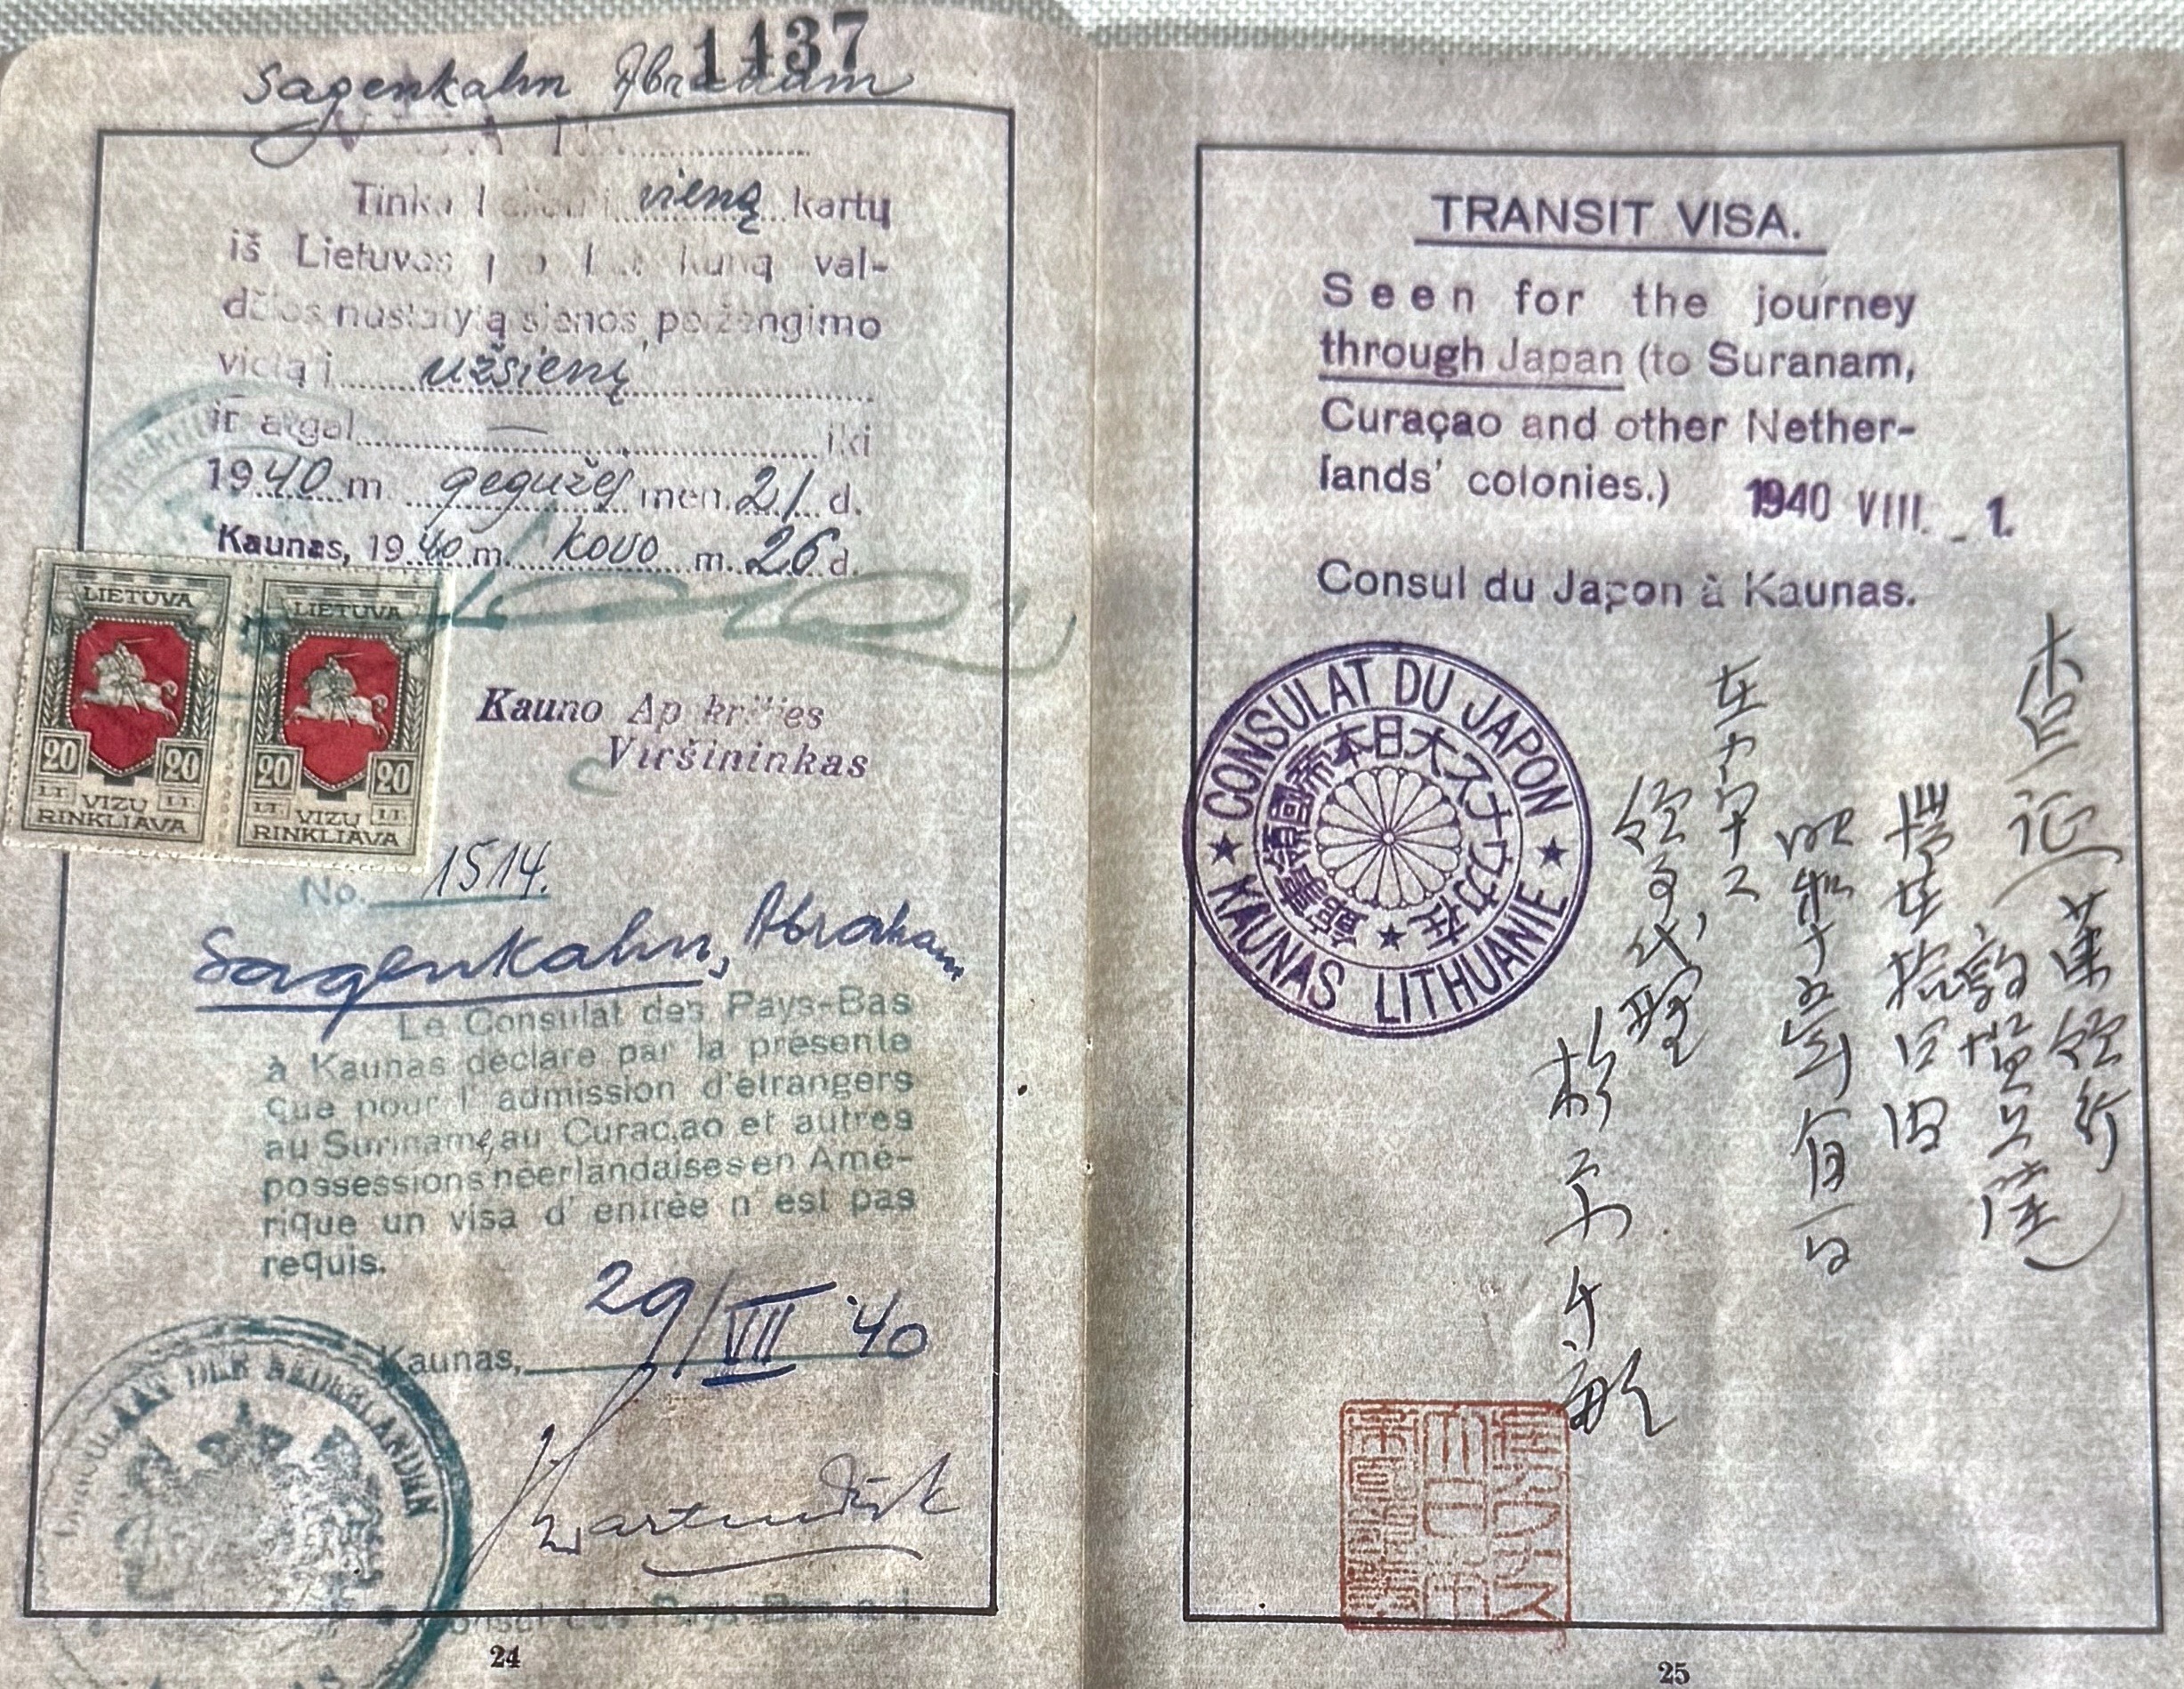 1437
Sagenkahn Abraham
VISA Nr.
Tinka vieną kartų
iš Lietuvos val-
džios nustatytą sienos peržengimo
vietą į užsienį
ir atgal — iki
1940 m. gegužės mėn. 21 d.
Kaunas, 1940 m. kovo m. 26 d.
LIETUVA
20 20
LT. VIZŲ LT.
RINKLIAVA
LIETUVA
20 20
LT. VIZŲ LT.
RINKLIAVA
Kauno Apskrities
Viršininkas
No. 1514.
Sagenkahn, Abraham
Le Consulat des Pays-Bas
à Kaunas déclare par la présente
que pour l'admission d'étrangers
au Suriname, au Curaçao et autres
possessions néerlandaises en Amé-
rique un visa d'entrée n'est pas
requis.
Kaunas, 29/VII '40
J. Zwartendijk
Consul des Pays-Bas a.i.
CONSULAAT DER NEDERLANDEN
24
TRANSIT VISA.
Seen for the journey
through Japan (to Suranam,
Curaçao and other Nether-
lands' colonies.) 1940 VIII. 1.
Consul du Japon à Kaunas.
CONSULAT DU JAPON
KAUNAS LITHUANIE
在カウナス大日本帝國領事館
査証
敦賀上陸
昭和十五年八月一日
在カウナス
領事代理
杉原千畝
25